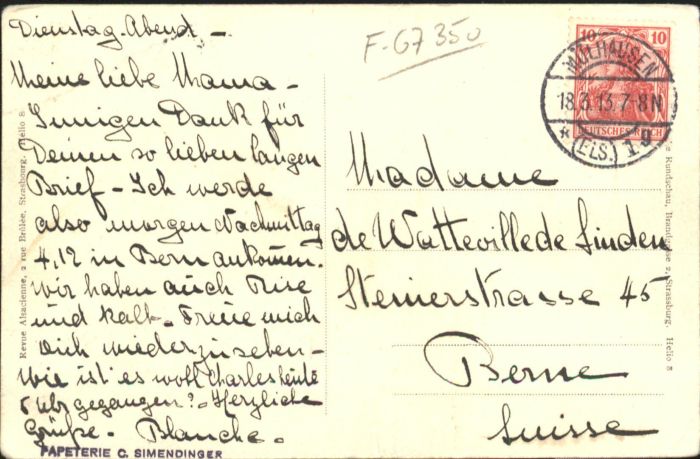 Dienstag-Abend -
Meine liebe Mama -
Innigen Dank für
Deinen so lieben langen
Brief - Ich werde
also morgen Nachmittag
4.12 in Bern ankommen.
Wir haben auch
und kalt. Freue mich
Dich wiederzusehen -
Wie ist es wohl Charles heute
gegangen? - Herzliche
Grüße - Blanche -
PAPETERIE C. SIMENDINGER
Revue Alsacienne, 2 rue Brûlée, Strasbourg. Helio 8
F-67350
10 10
DEUTSCHES REICH
MÜLHAUSEN
18.3.13.7-8N
* (ELS.) 1 g
Madame
de Watteville de Linden
Steinerstrasse 45
Berne
Suisse
Rundschau, Brandgasse 2, Strassburg. Helio 8